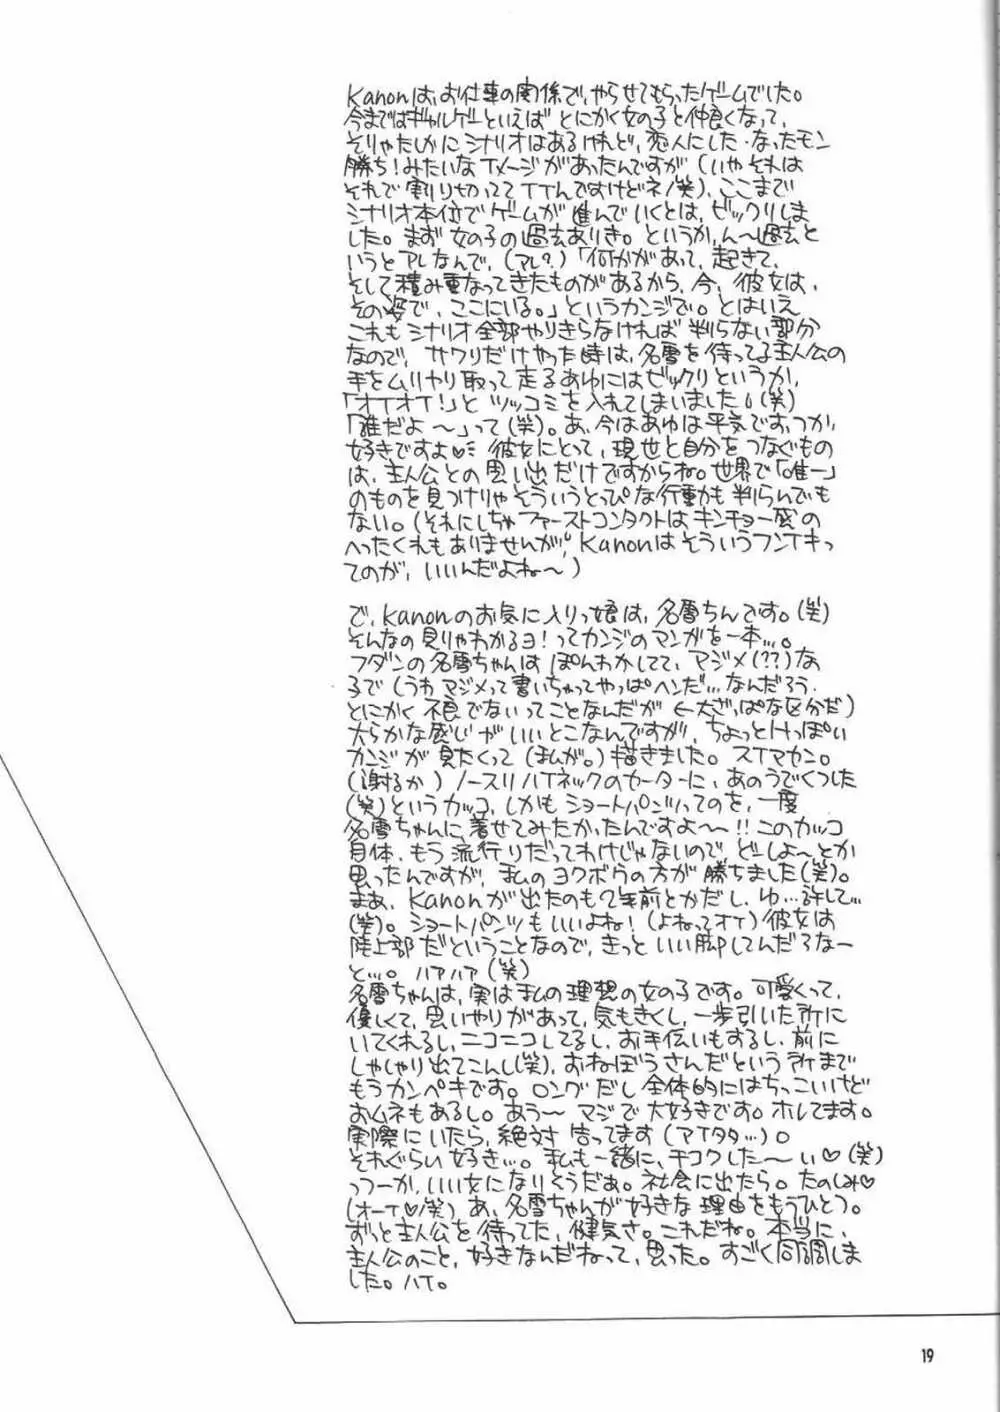 Kanonは、お仕事の関係で、やらせてもらったゲームでした。
今まではギャルゲーといえば とにかく女の子と仲良くなって、
そりゃたしかに シナリオはあるけれど、恋人にした・なったモン
勝ち!みたいな イメージがあったんですが (いや それは
それで割り切ってて イイんですけどネ/笑)、ここまで
シナリオ本位で ゲームが 進んで いくとは、ビックリしま
した。まず 女の子の過去ありき。というか、ん〜過去と
いうとアレなんで、(アレ?)「何かがあって、起きて、
そして積み重なってきたものがあるから、今、彼女は、
その姿で、ここにいる。」というカンジで。とはいえ
これも シナリオ全部やりきらなければ 判らない部分
なので、サワリだけやった時は、名雪を待ってる主人公の
手をムリヤリ取って 走るあゆにはビックリというか、
「オイオイ!」と ツッコミを入れてしまいました。(笑)
「誰だよ 〜」って(笑)。あ、今はあゆは平気です、つか、
好きですよ♡ 彼女にとって、現世と自分をつなぐもの
は、主人公との思い出だけですからね。世界で「唯一」
のものを見つけりゃそういうとっぴな行動も判らんでも
ない。(それにしちゃファーストコンタクトは キンチョー感の
へったくれもありませんが、Kanonはそういうフンイキっ
てのが、いいんだよね〜)

で、Kanonのお気に入りっ娘は、名雪ちんです。(笑)
そんなの見りゃわかるヨ!ってカンジのマンガを一本…。
フダンの名雪ちゃんは ぽんわかしてて、マジメ(??)な
子で(うわ マジメって書いちゃってやっぱヘンだ…なんだろう、
とにかく 不良でないってことなんだが ←大ざっぱな区分だ)
大らかな感じがいいとこなんですが、ちょっとHっぽい
カンジが 見たくって(私が。)描きました。スイマセン。
(謝るか) ノースリハイネックのセーターに、あのうでくつした
(笑)というカッコ、しかも ショートパンツってのを、一度
名雪ちゃんに着せてみたかったんですよ〜〜!!このカッコ
自体、もう流行りだってわけじゃないので どーしよ〜とか
思ったんですが、私のヨクボウの方が 勝ちました(笑)。
まあ、Kanonが出たのも2年前とかだし、ゆ…許して…
(笑)。ショートパンツもいいよね!(よねってオイ)彼女は
陸上部だということなので、きっと いい脚してんだろなー
と…。ハアハア(笑)
名雪ちゃんは、実は私の理想の女の子です。可愛くって、
優しくて、思いやりがあって、気もきくし、一歩引いた所に
いてくれるし、ニコニコしてるし、お手伝いもするし、前に
しゃしゃり出てこんし(笑)、おねぼうさんだという所まで
もうカンペキです。ロングだし 全体的にはちっこいけど
おムネもあるし。あう〜 マジで 大好きです。ホレてます。
実際にいたら、絶対 告ってます(アイタタ…)。
それぐらい好き…。私も一緒に、チコクした〜い♡(笑)
っつーか、いい女になりそうだあ。社会に出たら。たのしみ♡
(オーイ♡/笑) あ、名雪ちゃんが好きな 理由をもうひとつ。
ずっと主人公を待ってた、健気さ。これだね。本当に、
主人公のこと、好きなんだねって、思った。すごく同調しま
した。ハイ。
19